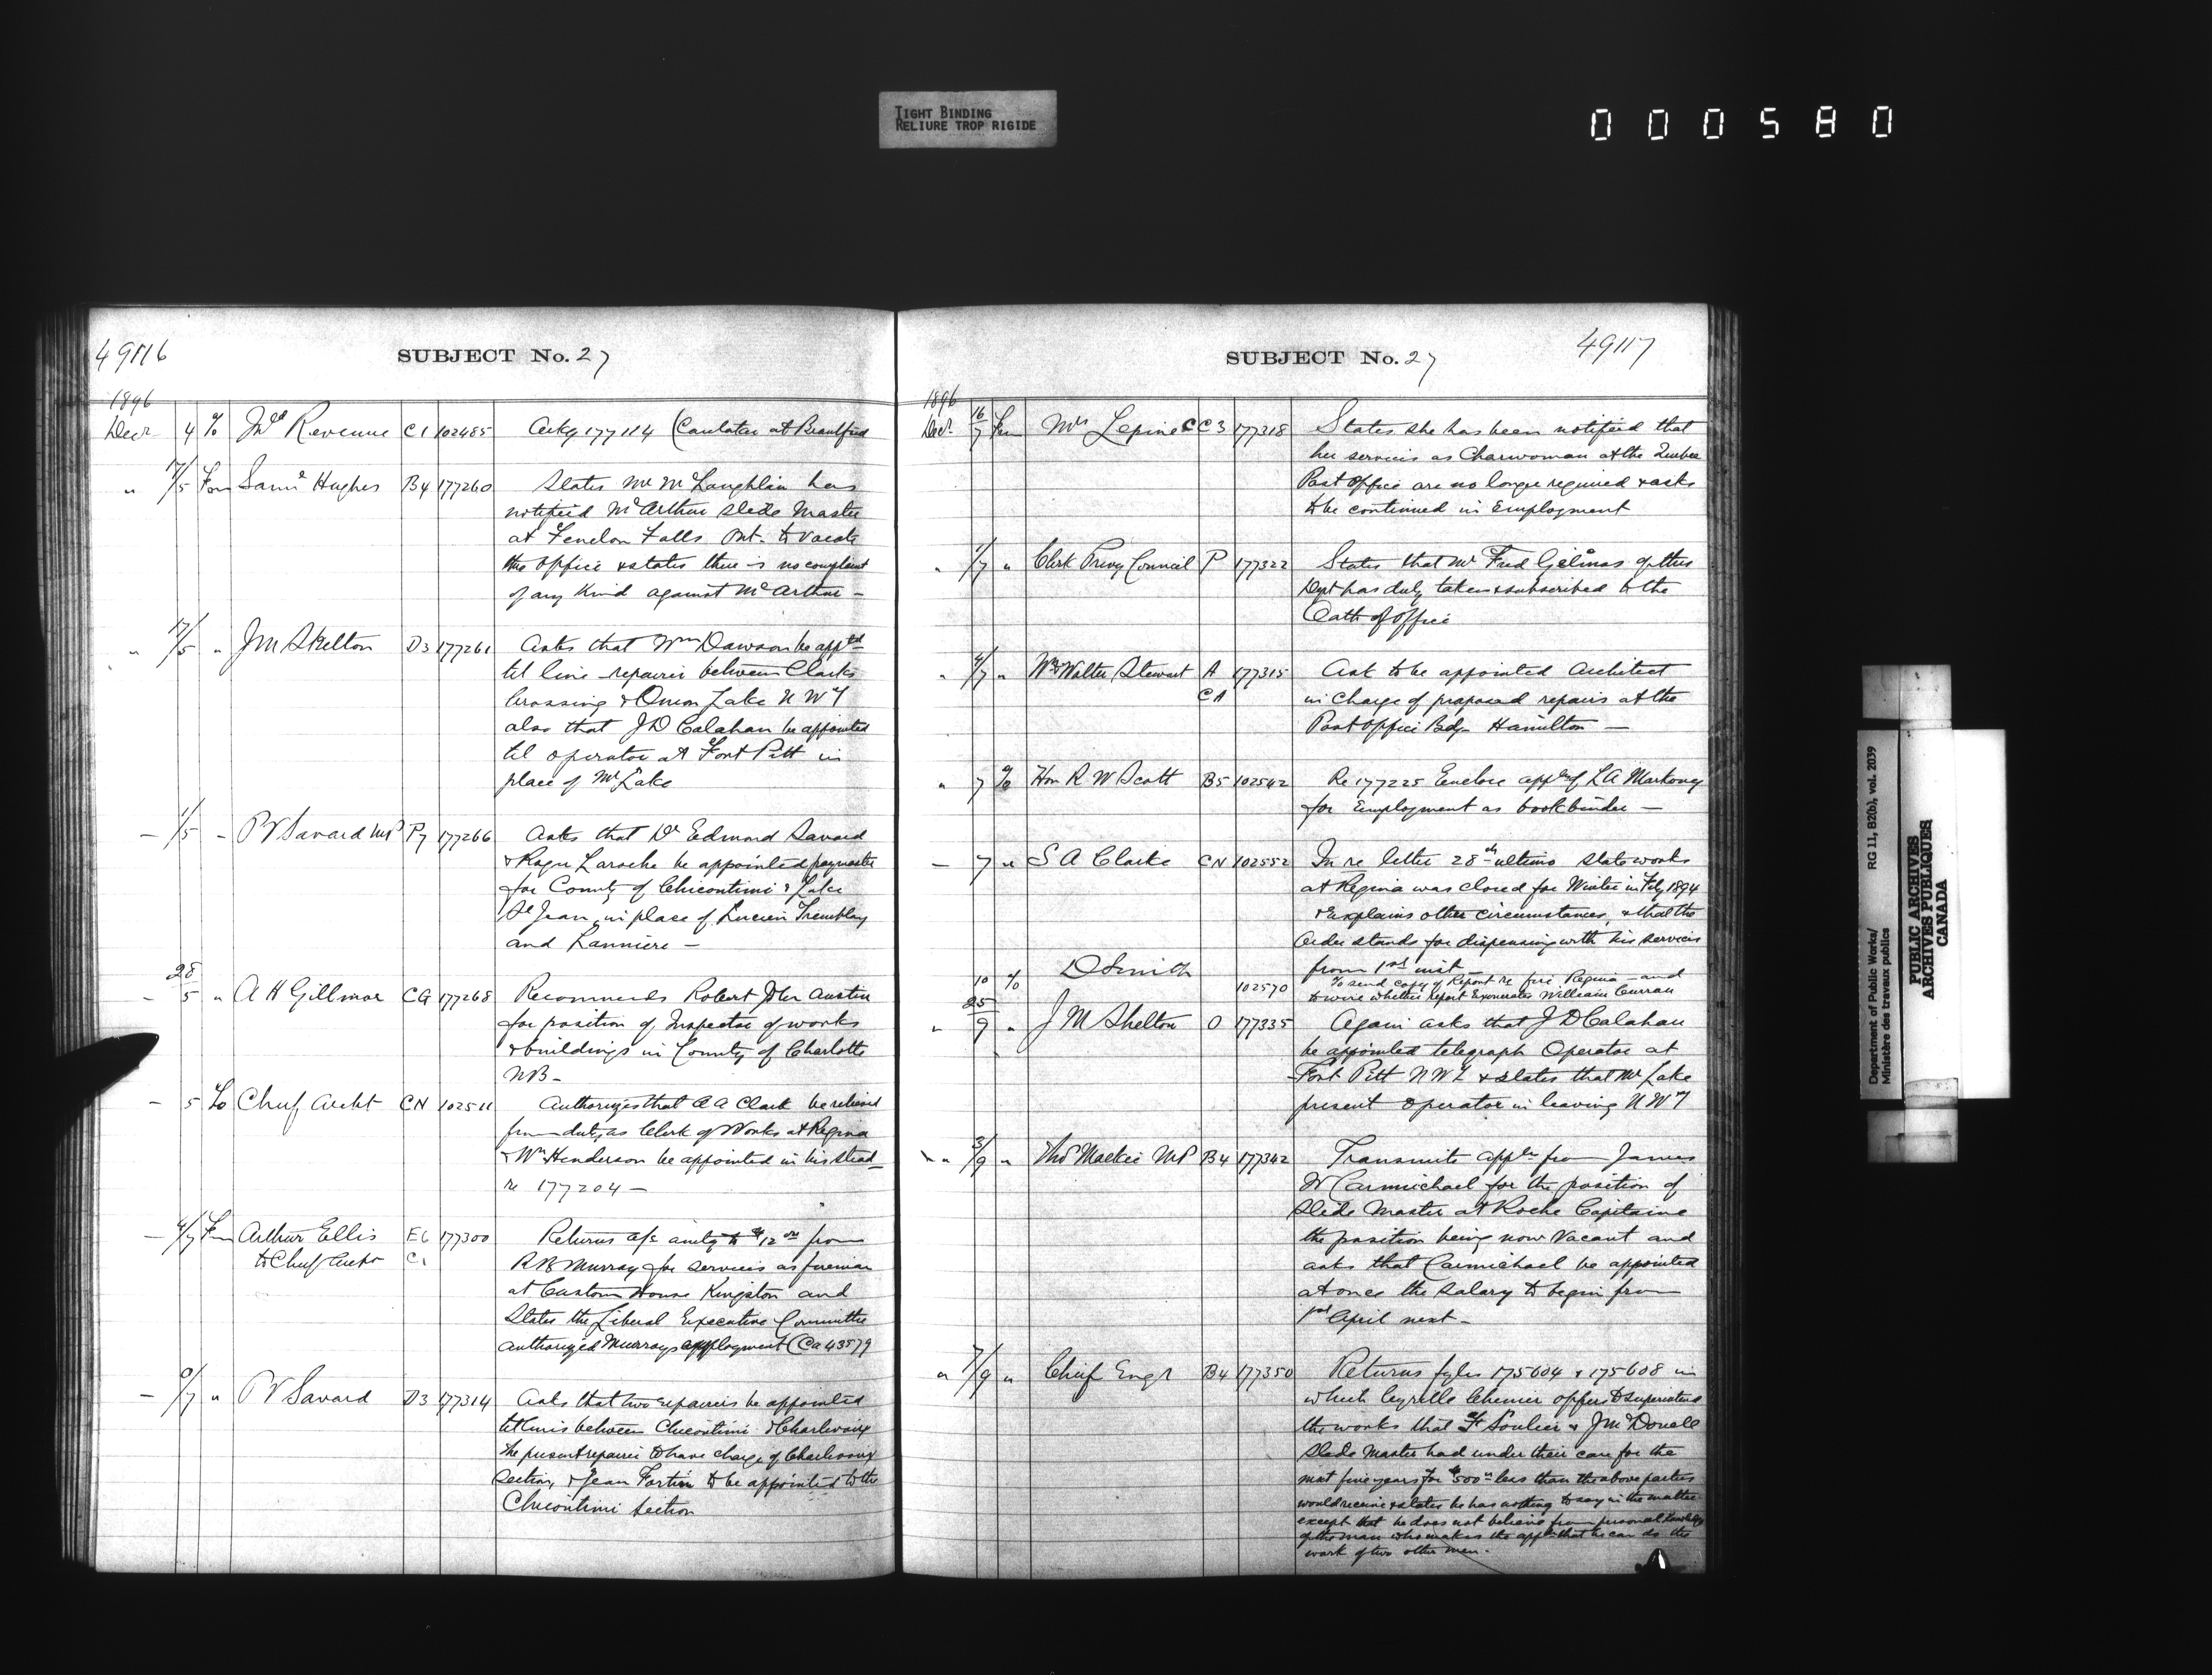 TIGHT BINDING
RELIURE TROP RIGIDE
000580
49116
SUBJECT No. 27
1896
Decr 4 To Inld Revenue C1 102485 Ackg 177114 (Caretaker at Brantford
" 17/5 Fm Saml Hughes B4 177260 States Mr McLaughlin has
notified McArthur Slide Master
at Fenelon Falls Ont. to vacate
the office & states there is no complaint
of any Kind against McArthur -
" 17/5 " J M Skelton D3 177261 Asks that Wm Dawson be apptd
tel line repairer between Clarks
Crossing & Onion Lake N W T
also that J D Calahan be appointed
tel operator at Fort Pitt in
place of Mr Lake
- 1/5 - P V Savard MP P7 177266 Asks that Dr Edmond Savard
& Roger Laroche be appointed paymaster
for County of Chicoutimi & Lake
St Jean in place of Lucien Tremblay
and Lanniere -
- 28/5 " A H Gillmor CG 177268 Recommends Robert John Austin
for position of Inspector of works
& buildings in County of Charlotte
NB -
- 5 To Chief Archt CN 102511 Authorizes that A A Clark be relieved
from duty as Clerk of Works at Regina
& Wm Henderson be appointed in his stead
re 177204 -
- 4/7 Fm Arthur Ellis E6 177300 Returns a/c amtg to $12 00 from
to Chief Archt C1 R B Murray for services as fireman
at Custom House Kingston and
States the Liberal Executive Committee
authorized Murrays employment (Ca 43579
- 9/7 " P V Savard D3 177314 Asks that two repairers be appointed
tel lines between Chicoutimi & Charlevoix
the present repairer to have charge of Charlevoix
Section, & Jean Fortin to be appointed to the
Chicoutimi Section
SUBJECT No. 27
49117
1896
Decr 16/7 Fm Mrs Lepine C C3 177318 States she has been notified that
her services as Charwoman at the Quebec
Post Office are no longer required & asks
to be continued in Employment
" 1/7 " Clerk Privy Council P 177322 States that Mr Fred Gélinas of this
Dept has duly taken & subscribed to the
Oath of Office
" 4/7 " W & Walter Stewart A 177315 Ask to be appointed Architect
CA in Charge of proposed repairs at the
Post Office Bdg Hamilton -
" 7 To Hon R W Scott B5 102542 Re 177225 Enclose appln of L A
for Employment as bookbinder -
- 7 " S A Clarke CN 102552 In re letter 28th ultimo state works
at Regina was closed for Winter in Feby 1894
& Explains other circumstances, & that the
Order stands for dispensing with his services
from 1st inst -
10 To D Smith 102570 To send copy of Report re fire Regina and
to wire whether report Exonerates William Curran
" 25/9 " J M Skelton O 177335 Again asks that J D Calahan
be appointed telegraph Operator at
Fort Pitt N W T & states that Mr Lake
present operator in leaving N W T
" 3/9 " Thos Mackie MP B4 177342 Transmits appln from James
W Carmichael for the position of
Slide Master at Roche Capitaine
the position being now Vacant and
asks that Carmichael be appointed
at once the salary to begin from
1st April next -
" 7/9 " Chief Engr B4 177350 Returns fyles 175604 & 175608 in
which Cyrille Chenier offers to superintend
the works that F Soulier & J McDonell
Slide Master had under their care for the
next five years for $500 00 less than the above parties
would receive & states he has nothing to say in the matter
except that he does not believe from personal knowledge
of the man who makes the appln that he can do the
work of two other men.
Department of Public Works/
Ministère des travaux publics
RG 11, B2(b), vol. 2039
PUBLIC ARCHIVES
ARCHIVES PUBLIQUES
CANADA